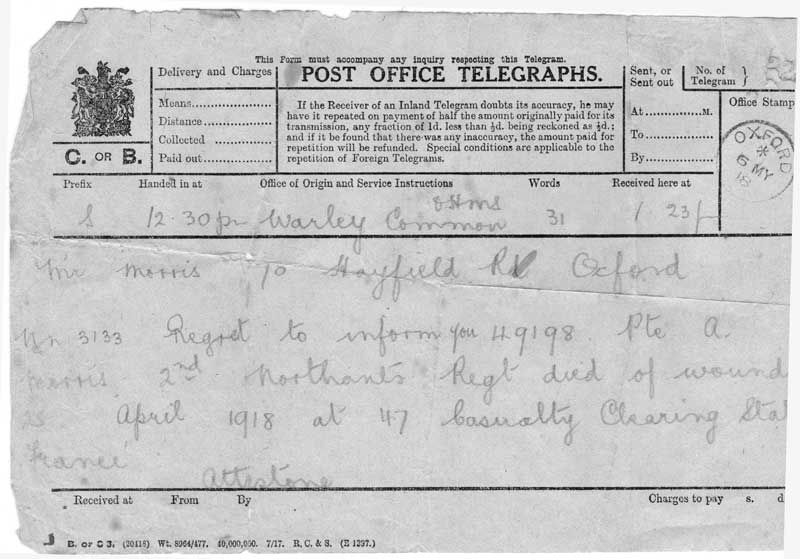 This Form must accompany any inquiry respecting this Telegram.
POST OFFICE TELEGRAPHS.
If the Receiver of an Inland Telegram doubts its accuracy, he may
have it repeated on payment of half the amount originally paid for its
transmission, any fraction of 1d. less than ½d. being reckoned as ½d.;
and if it be found that there was any inaccuracy, the amount paid for
repetition will be refunded. Special conditions are applicable to the
repetition of Foreign Telegrams.
C. OR B.
Delivery and Charges
Means
Distance
Collected
Paid out
Sent, or
Sent out
No. of
Telegram
At M.
To
By
Office Stamp
OXFORD
*
6 MY
18
Prefix Handed in at Office of Origin and Service Instructions Words Received here at
S 12.30 pm Warley Common OHMS 31 1 23
Mr Morris 70 Hayfield Rd Oxford
3133 Regret to inform you 49198 Pte A.
Morris 2nd Northants Regt died of wound
25 April 1918 at 47 Casualty Clearing Stat
France
Received at From By Charges to pay s. d
B. or C 3. (20416) Wt. 8964/477. 40,000,000. 7/17. R. C. & S. (E 1237.)